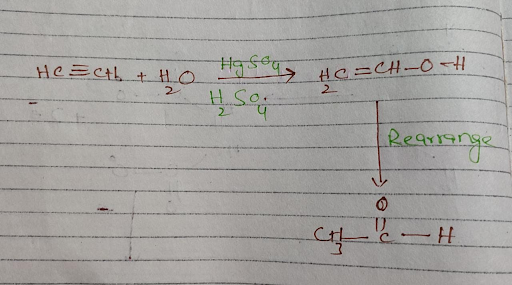 HC≡CH + H2O HgSO4 H2SO4 → H2C=CH-O-H
Rearrange
O
CH3-C-H